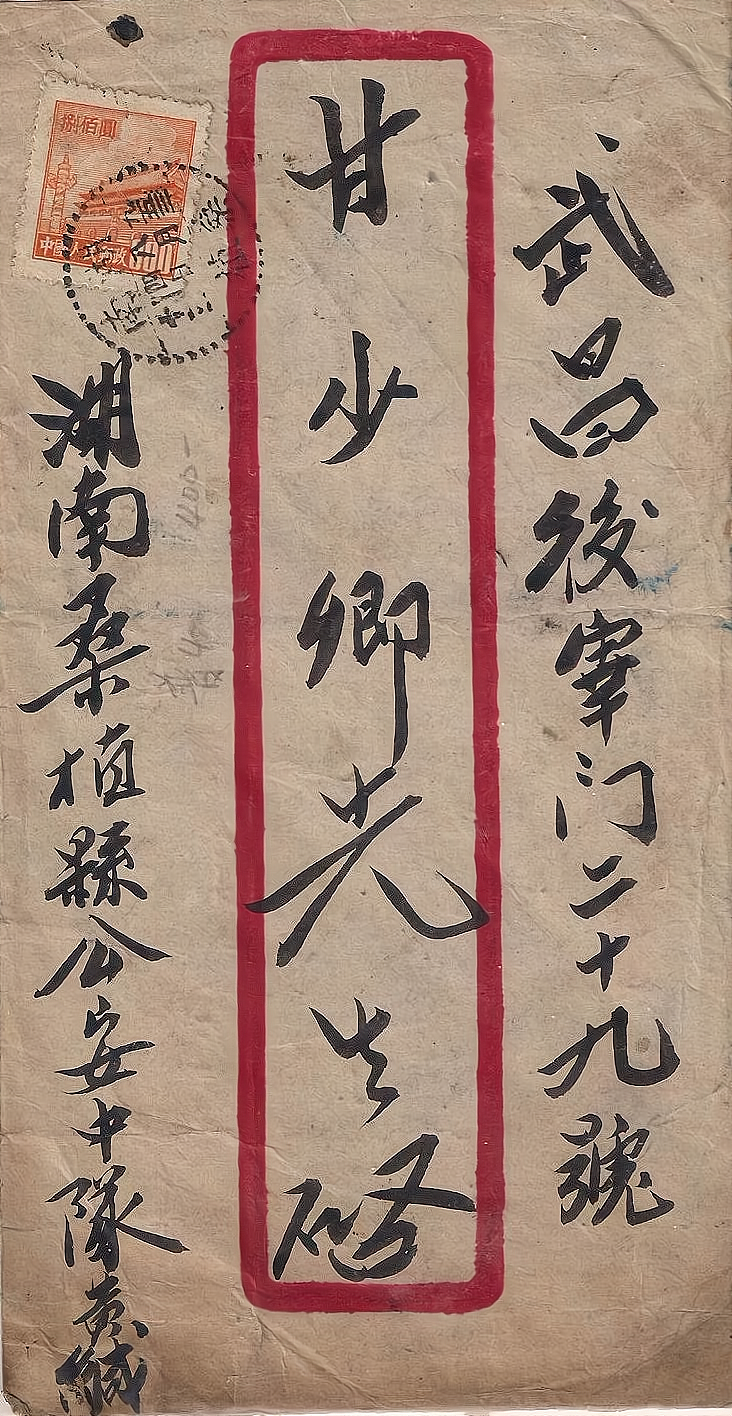 武昌後宰门二十九號
甘少卿先生啓
湖南桑植縣公安中隊黄緘
捌佰圓
中国人民邮政